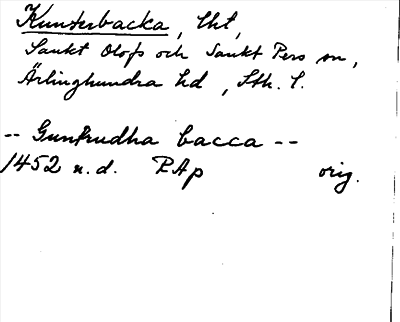 Kunsterbacka, lht,
Sankt Olofs och Sankt Pers sn,
Ärlinghundra hd, Sth. l.
-- Gunkrudha bacca --
1452 n.d. RAp orig.